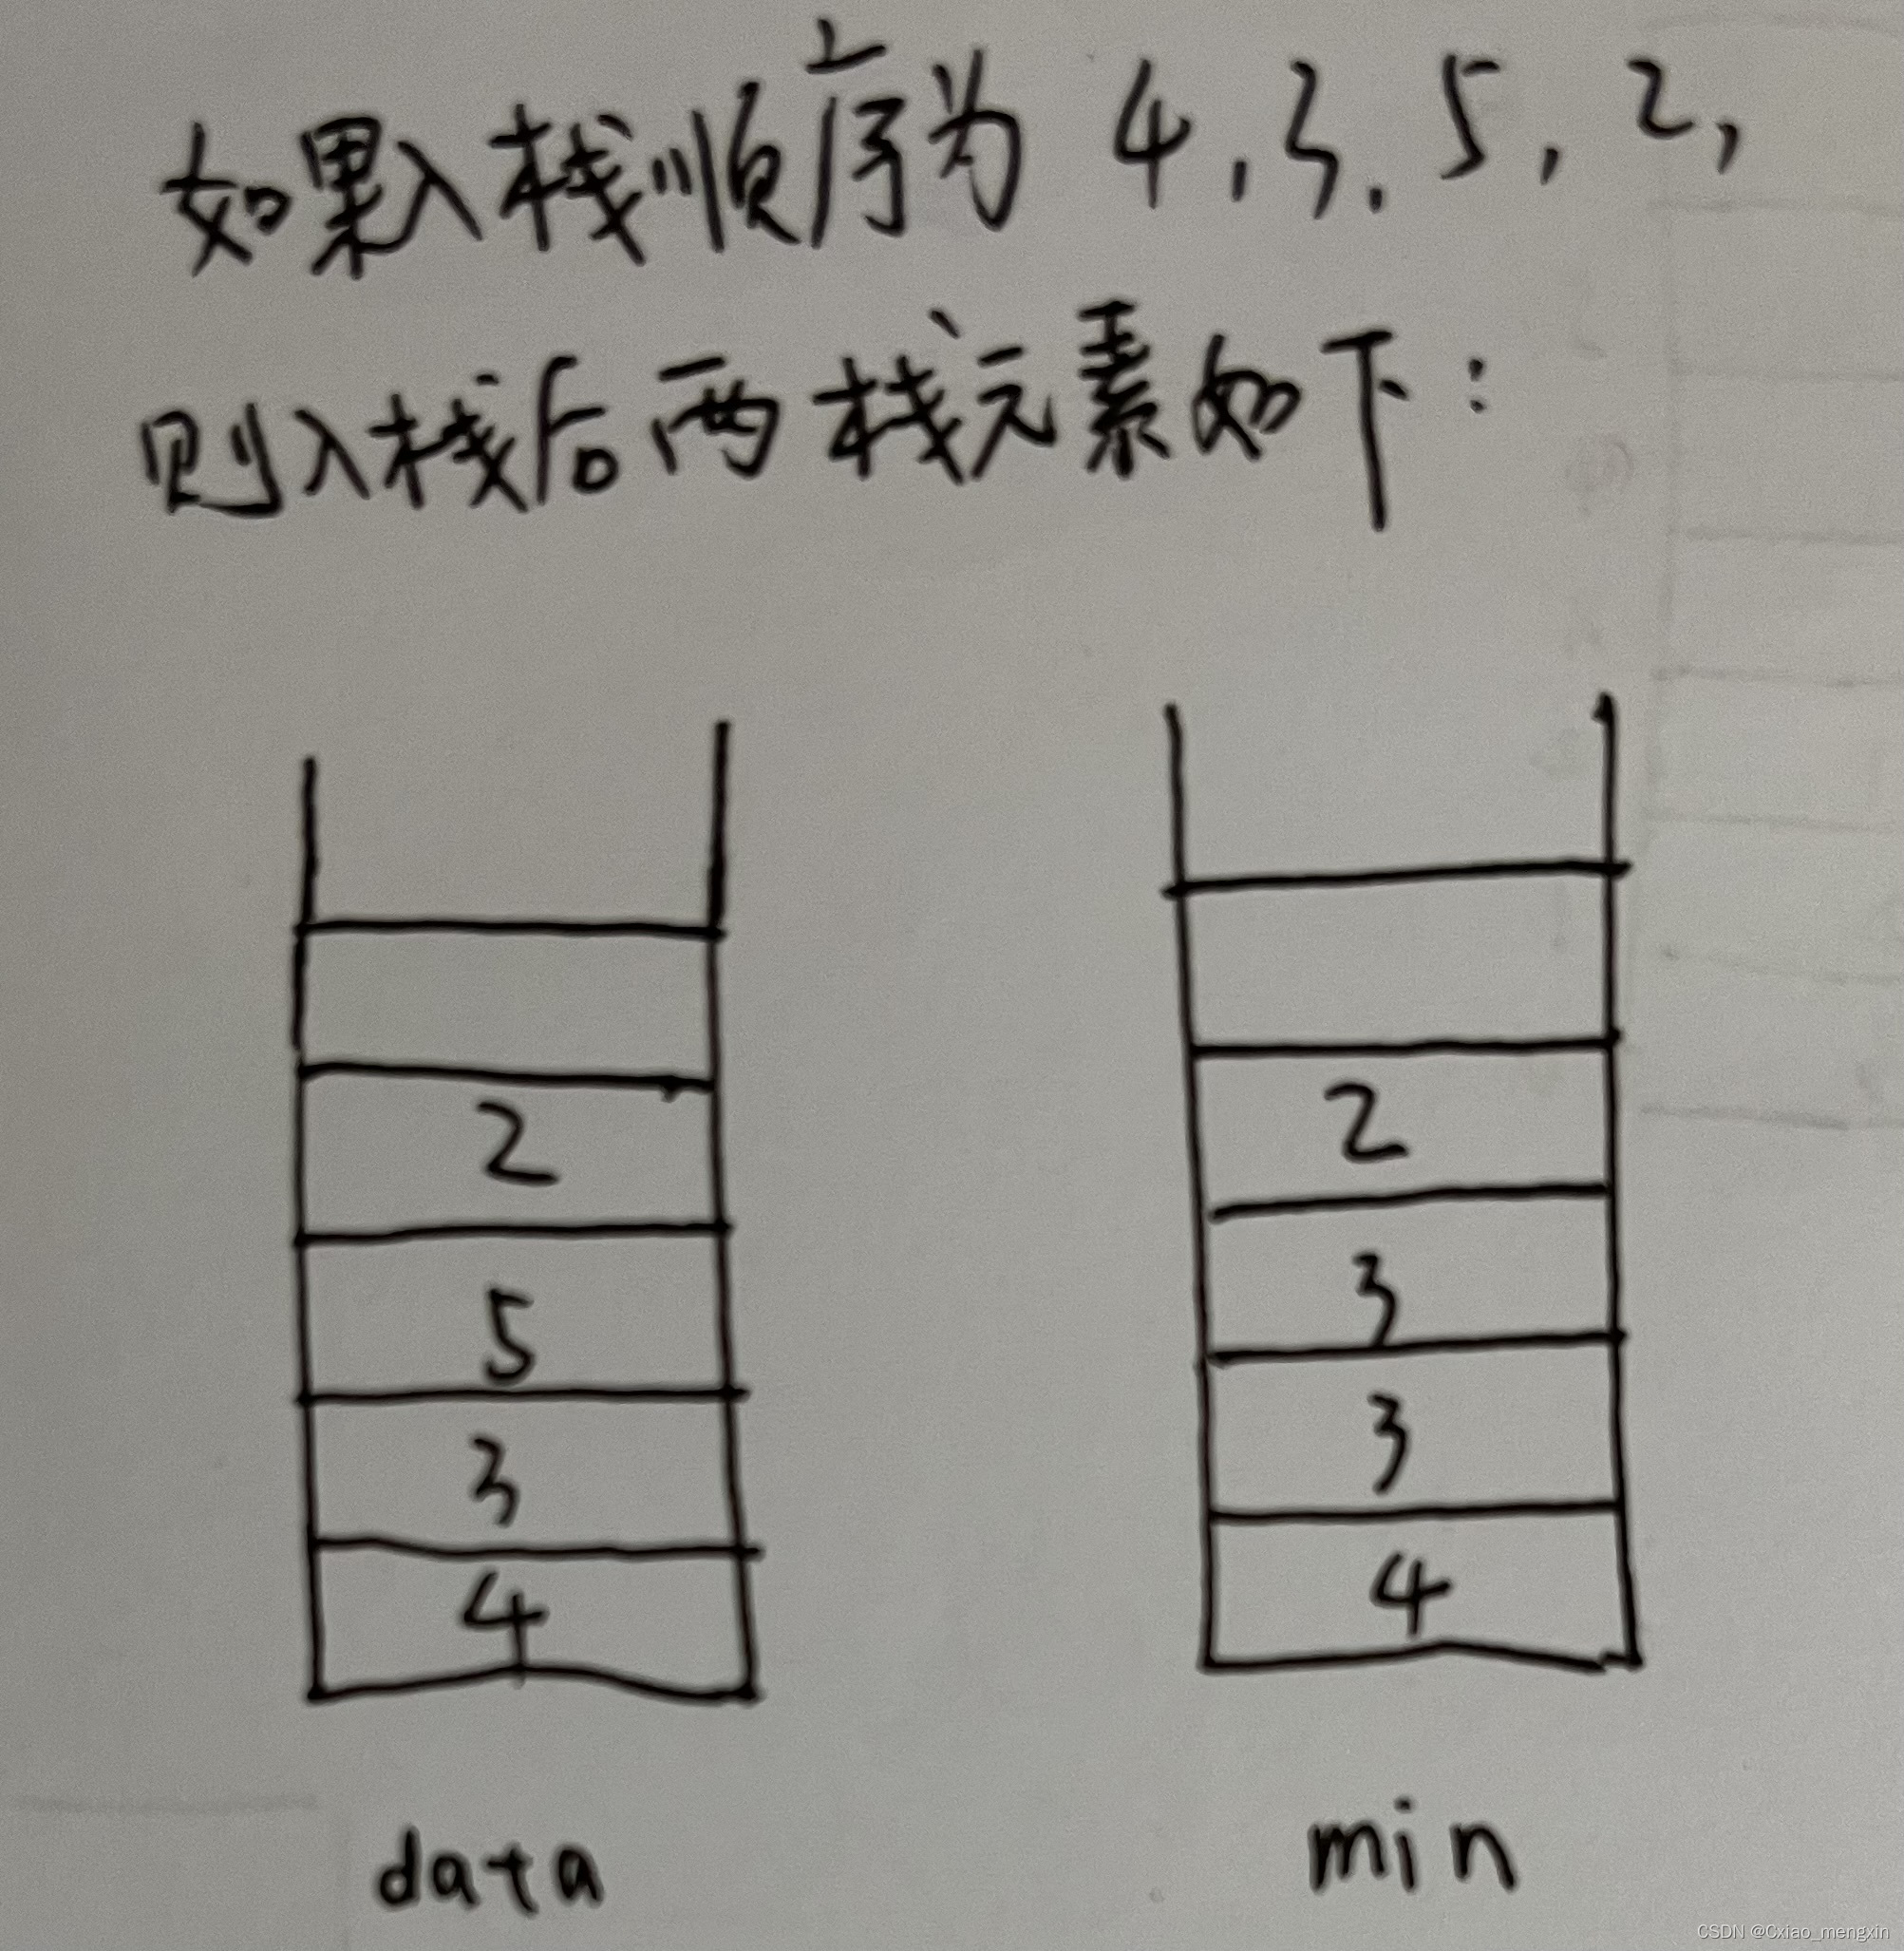 如果入栈顺序为 4,3,5,2,
则入栈后两栈元素如下:
2
2
5
3
3
3
4
4
data
min
CSDN @Cxiao_mengxin